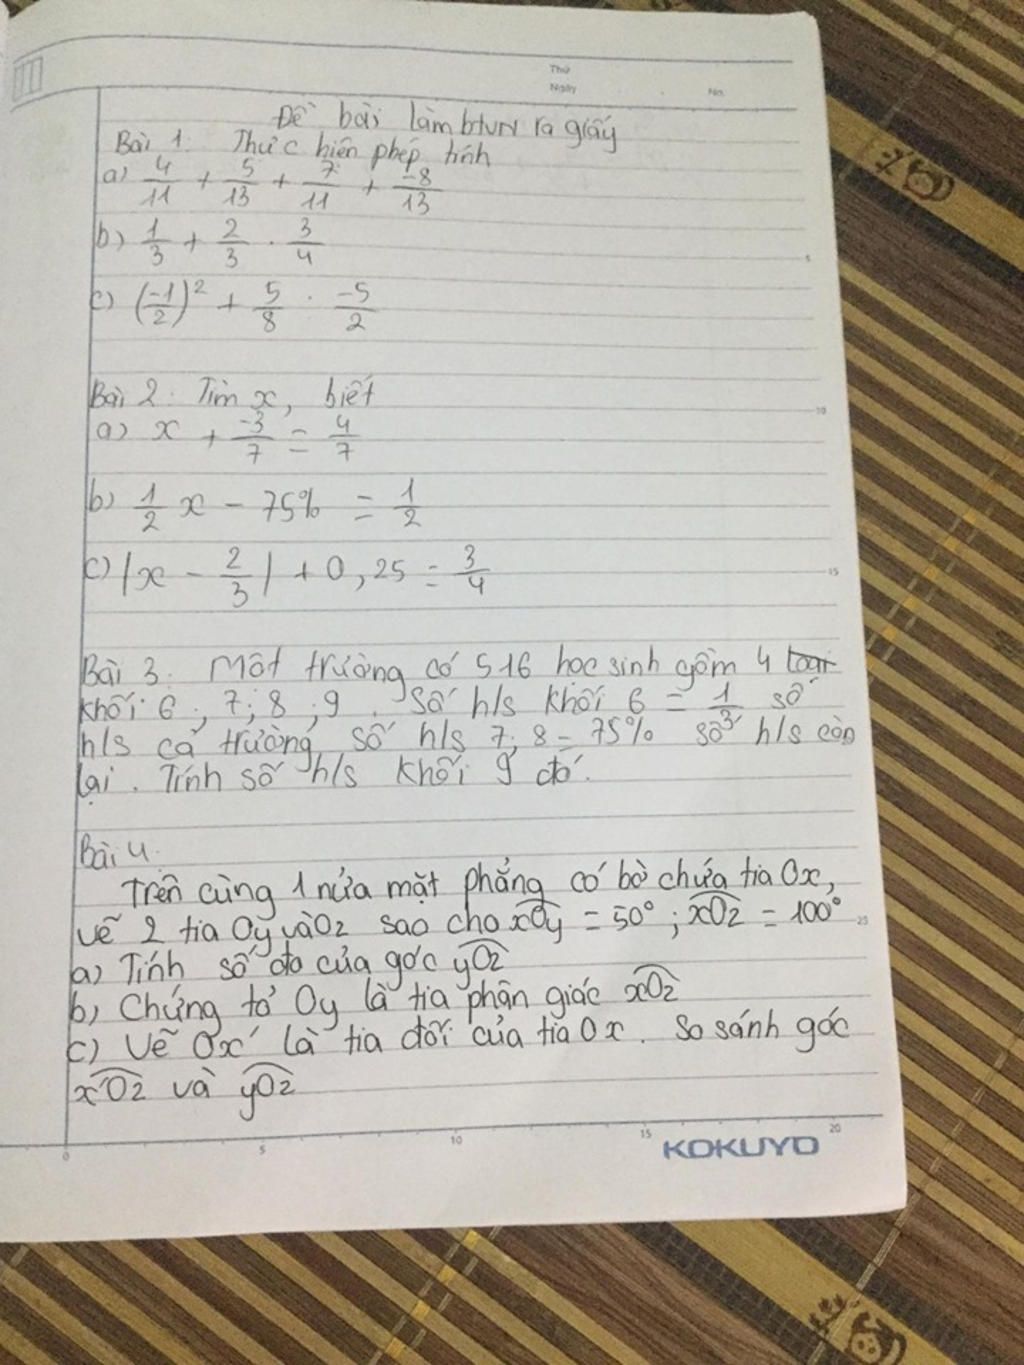 Thứ
Ngày No.
Đề bài làm btvn ra giấy
Bài 1: Thực hiện phép tính
a) 4/11 + 5/13 + 7/11 + -8/13
b) 1/3 + 2/3 . 3/4
c) (-1/2)² + 5/8 . -5/2
Bài 2: Tìm x, biết
a) x + -3/7 = 4/7
b) 1/2 x - 75% = 1/2
c) |x - 2/3| + 0,25 = 3/4
Bài 3: Một trường có 516 học sinh gồm 4
khối 6; 7; 8; 9. Số h/s khối 6 = 1/3 số
h/s cả trường, số h/s 7; 8 = 75% số h/s còn
lại. Tính số h/s khối 9 đó.
Bài 4.
Trên cùng 1 nửa mặt phẳng có bờ chứa tia Ox,
vẽ 2 tia Oy và Oz sao cho xOy = 50°; xOz = 100°
a) Tính số đo của góc yOz
b) Chứng tỏ Oy là tia phân giác xOz
c) Vẽ Ox' là tia đối của tia Ox. So sánh góc
x'Oz và yOz
5
10
15
25
0 5 10 15 20
KOKUYO